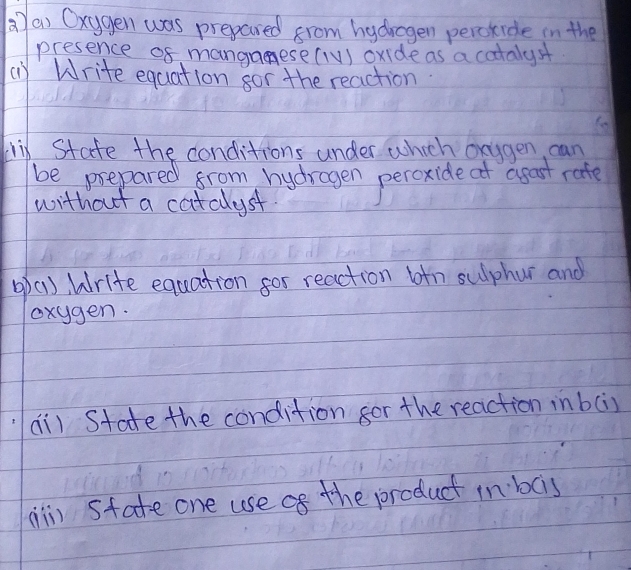 2)a) Oxygen was prepared from hydrogen peroxide in the
presence of manganese (IV) oxide as a catalyst.
(i) Write equation for the reaction.
(ii) State the conditions under which oxygen can
be prepared from hydrogen peroxide at a fast rate
without a catalyst.
b)(i) Write equation for reaction btn sulphur and
oxygen.
(ii) State the condition for the reaction in b(i)
(iii) State one use of the product in b(i)